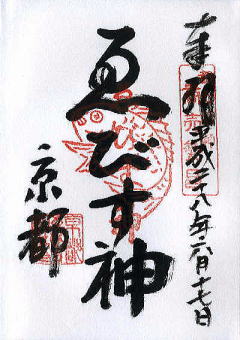 奉拝 平成二十八年六月十七日
ゑびす神
京都